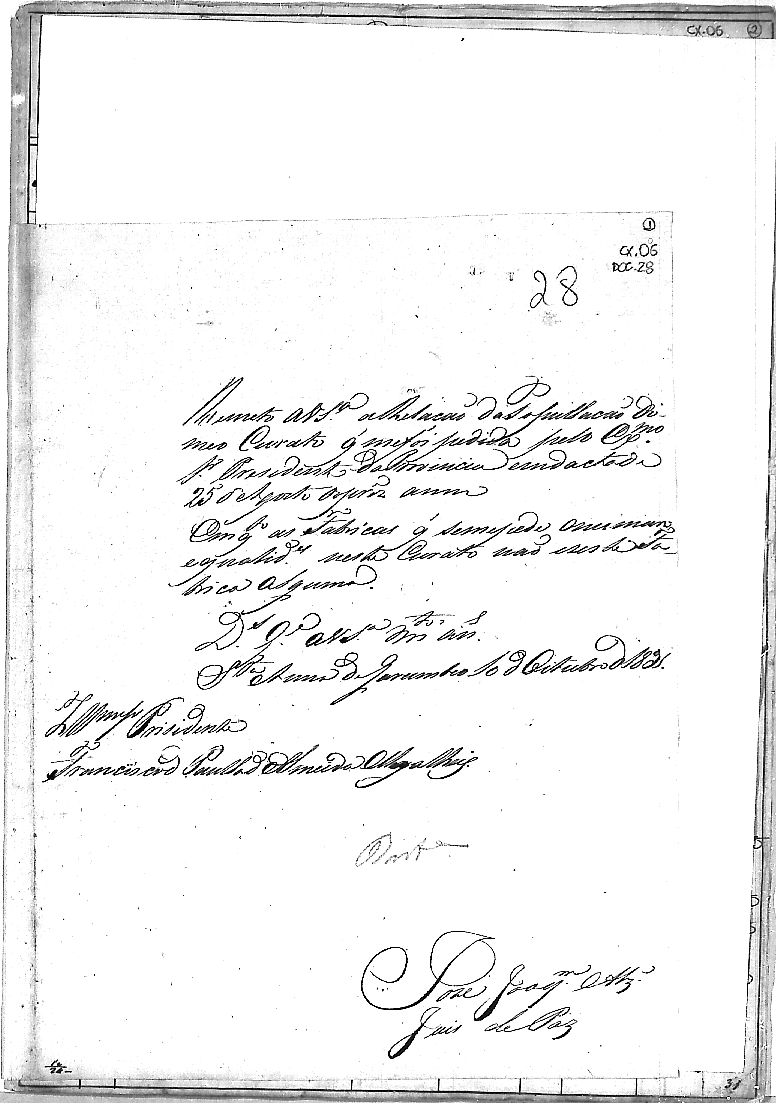 CX.06 2
1
CX.06
DOC.28
28
Remeto a V.S.ª a Relacaõ da Popullacaõ di
meo Curato q̃ me foi pedida pelo Ex.mo
S.r President da Provincia em dacta de
25 de Agosto do prez. anno
Em q.to as Fabricas q̃ semepede
e qualid.es neste Curato naõ exeste Fa-
brica alguma.
D.s G.e a V.S.ª m.tos an.s
S.ta Anna de 10 d Oitubro d 1831.
Presidente
Francisco d Paulla d Almeida Magalhẽis
José Joaq.m Alz.
Juis de Paz
31